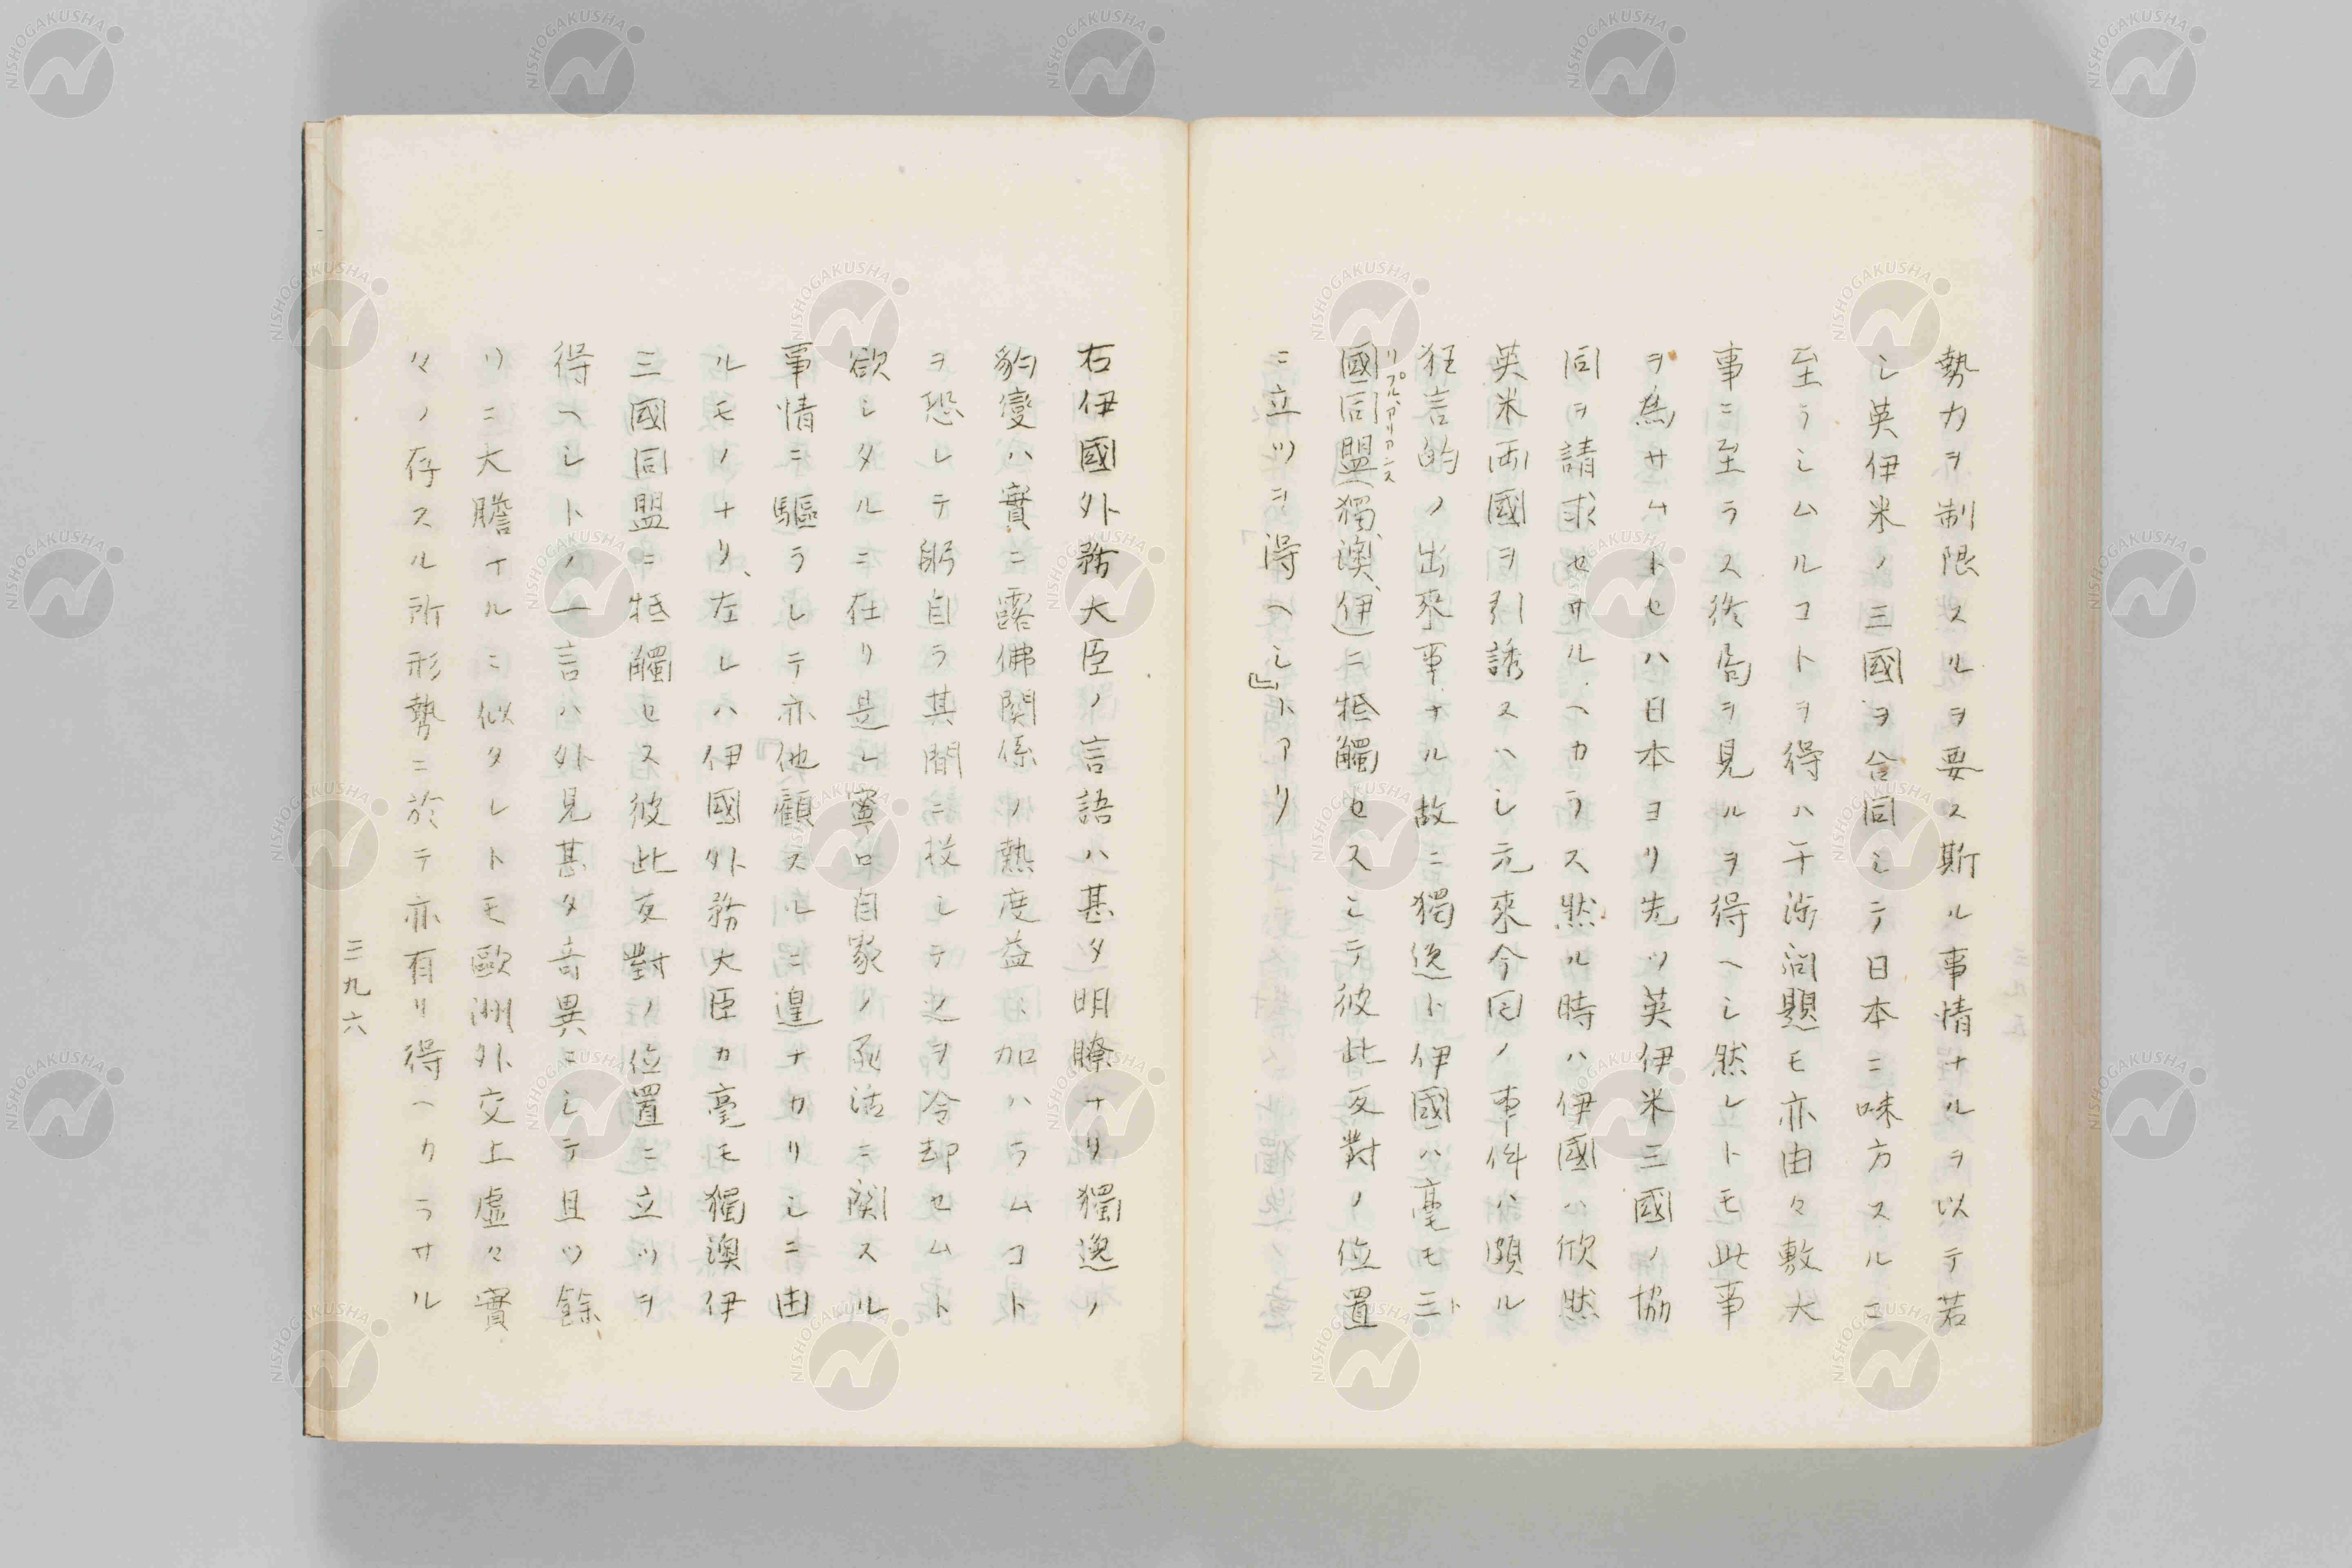 勢力ヲ制限スルヲ要ス斯ル事情ナルヲ以テ若
シ英伊米ノ三國ヲ合同シテ日本ニ味方スルニ
至ラシムルコトヲ得ハ干渉問題モ亦由々敷大
事ニ至ラス終局ヲ見ルヲ得ヘシ然レトモ此事
ヲ為サムトセハ日本ヨリ先ツ英伊米三國ノ協
同ヲ請求セサルヘカラス然ル時ハ伊國ハ欣然
英米両國ヲ引誘スヘシ元來今回ノ事件ハ頗ル
狂言的ノ出來事ナル故ニ獨逸ト伊國ハ毫モ三
トリプルアリアンス
國同盟(獨、澳、伊)ニ牴觸セスシテ彼此反對ノ位置
ニ立ツヲ得ヘシ』トアリ
右伊國外務大臣ノ言語ハ甚タ明瞭ナリ獨逸ノ
豹變ハ實ニ露佛関係ノ熱度益々加ハラムコト
ヲ恐レテ躬自ラ其間ニ投シテ之ヲ冷却セムト
欲シタルニ在リ是レ寧ロ自家ノ死活ニ関スル
事情ニ驅ラレテ亦他顧スルニ遑ナカリシニ由
ルモノナリ、左レハ伊國外務大臣カ毫モ獨澳伊
三國同盟ニ牴觸セス彼此反對ノ位置ニ立ツヲ
得ヘシトノ一言ハ外見甚タ奇異ニシテ且ツ餘
リニ大膽ナルニ似タレトモ歐洲外交上虚々實
々ノ存スル所形勢ニ於テ亦有リ得ヘカラサル
三九六
NISHOGAKUSHA